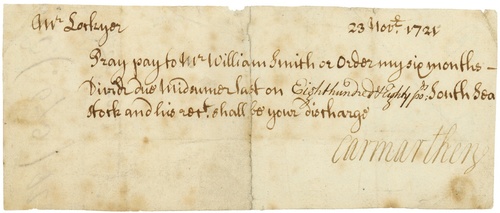 Mr Lockyer 23 Novr. 1721
Pray pay to Mr William Smith or Order my six months
Divid due Midsumer last on Eighthundred & Eighty po. South Sea
stock and his rect. shall be your discharge
Carmarthen